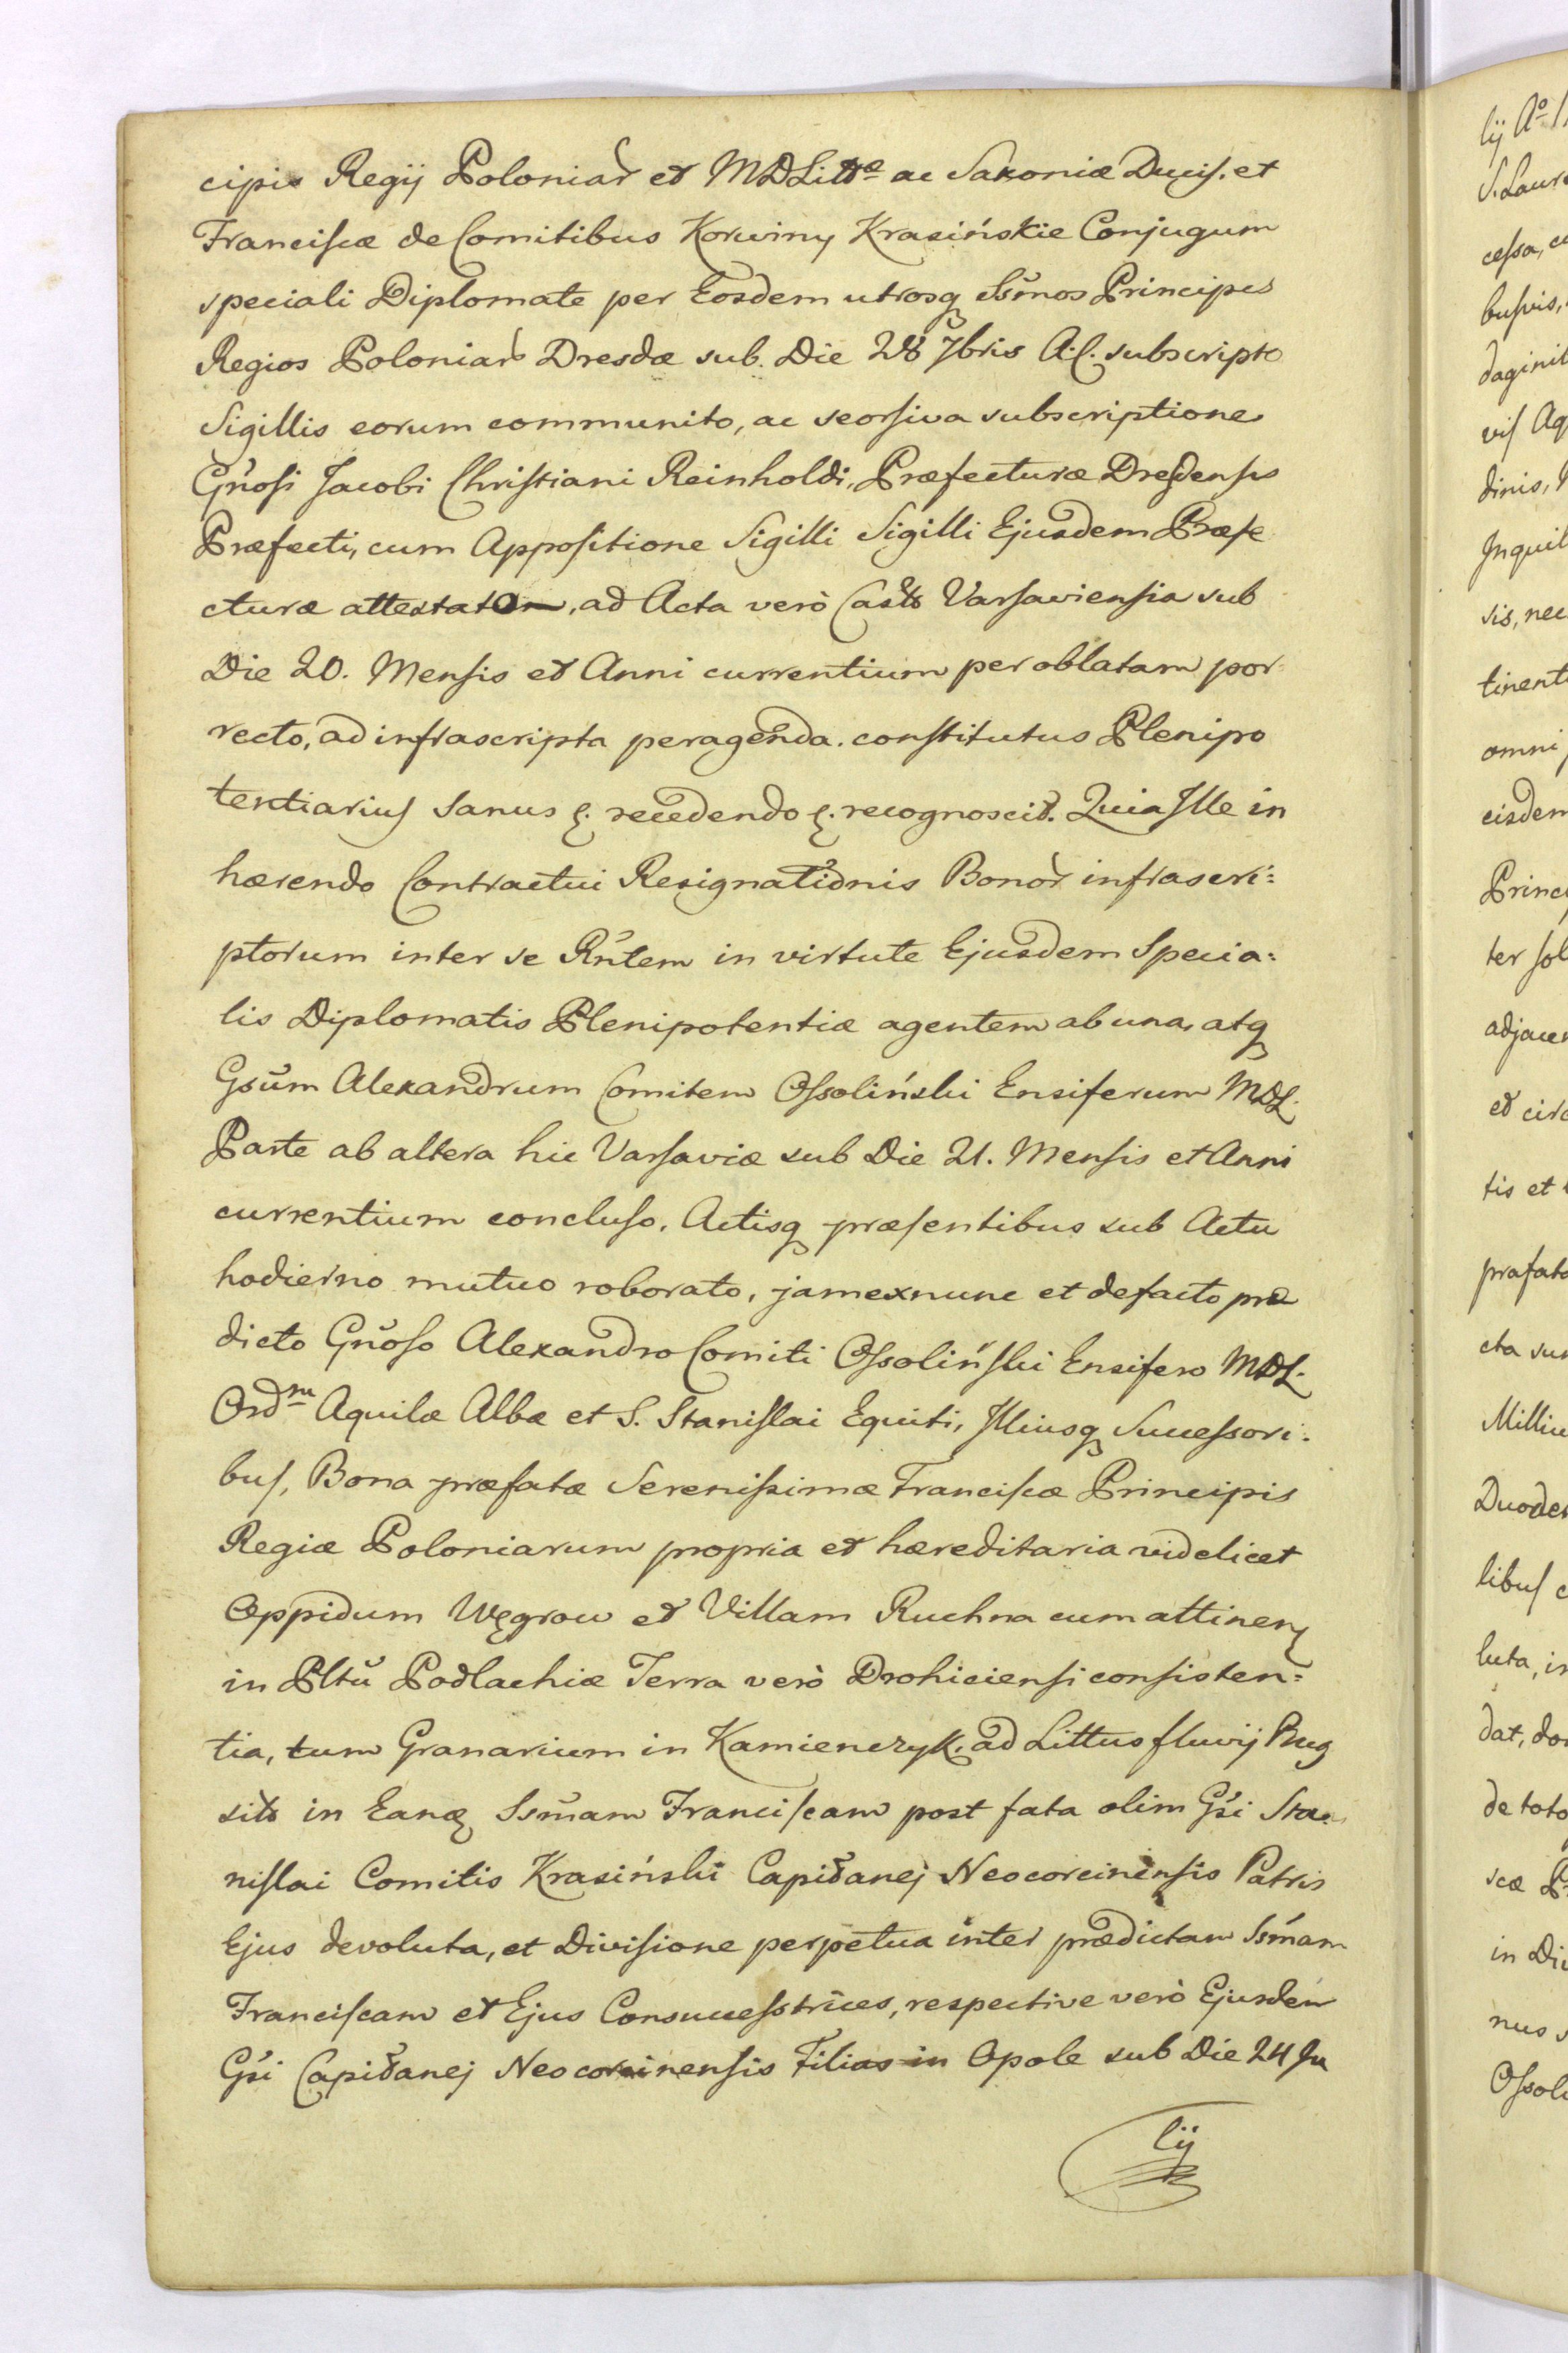 cipis Regij Poloniar et MDLittæ ac Saxoniæ Ducis. et
Franciscæ de Comitibus Korwiny Krasińskie Conjugum
speciali Diplomate per Eosdem utrosq Ssmos Principes
Regios Poloniar Dresdæ sub. Die 28 7bris A.C. subscripto
Sigillis eorum communito, ac seorsiva subscriptione
Gnosi Jacobi Christiani Reinholdi, Præfecturæ Dresdensis
Præfecti, cum Appositione Sigilli Sigilli Ejusdem Præfe
cturæ attestato, ad Acta verò Castr Varsaviensia sub
Die 20. Mensis et Anni currentium per oblatam por
recto, ad infrascripta peragenda. constitutus Plenipo
tentiarius Sanus &. recedendo &. recognoscit. Quia Ille in
hærendo Contractui Resignationis Bonor infrascri:
ptorum inter se Rntem in virtute Ejusdem Specia:
lis Diplomatis Plenipotentiæ agentem ab una, atq
Gsum Alexandrum Comitem Ossoliński Ensiferum MDL.
Parte ab altera hic Varsaviæ sub Die 21. Mensis et Anni
currentium concluso. Actisq præsentibus sub Actu
hodierno mutuo roborato, jamexnunc et defacto præ
dicto Gnoso Alexandro Comiti Ossoliński Ensifero MDL.
Ordm Aquilæ Albæ et S. Stanislai Equiti, Illiusq Successori:
bus, Bona præfatæ Serenissimæ Franciscæ Principis
Regiæ Poloniarum propria et hæreditaria videlicet
Oppidum Węgrow et Villam Ruchna cum attinen
in Pltu Podlachiæ Terra verò Drohiciensi consisten=
tia, tum Granarium in Kamienczyk, ad Littus fluvij Bug
sito in Eanq Ssmam Franciscam post fata olim Gsi Sta
nislai Comitis Krasiński Capitanej Neocorcinensis Patris
Ejus devoluta, et Divisione perpetua inter prædictam Ssmam
Franciscam et Ejus Consuccesstrices, respective verò Ejusdem
Gsi Capitanej Neocorcinensis Filias in Opole sub Die 24 Ju
lij
lij Ao
S. Laure
cessa, cu
busvis,
daginib
vis Aq
dinis,
Inquil
sis, nec
tinenti
omni
eisdem
Princi
ter sol
adjacen
et circ
tis et
præfato
cta sun
Milliu
Duodec
libus c
luta, in
dat, do
de toto
scæ P
in Di
nus
Ossoli